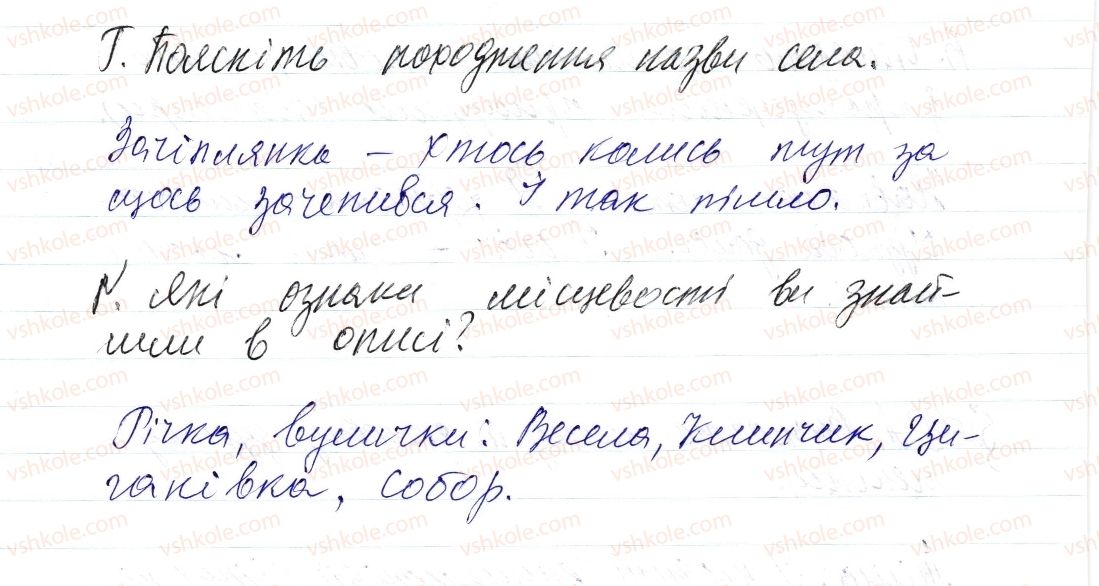 Г. Поясніть походження назви села.
Зачіплянка – Хтось колись тут за
щось зачепився. І так пішло.
Ґ. Які ознаки місцевості ви знай-
шли в описі?
Річка, вулички: Весела, Клинчик, Ци-
ганівка, Собор.